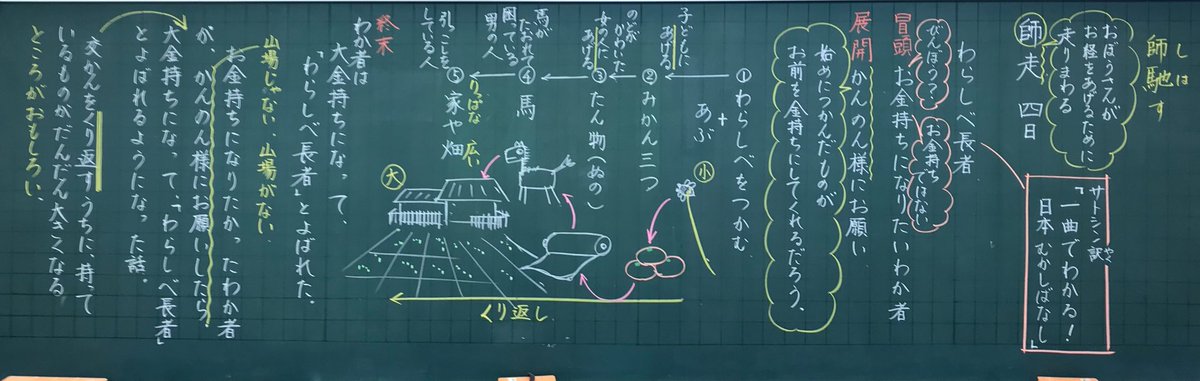 しは
師馳す
おぼうさんが
お経をあげるために
走りまわる
師走 四日
サトシン訳
やく
「一曲でわかる!
日本むかしばなし」
わらしべ長者
びんぼう?
お金持ち
ではない
冒頭 お金持ちになりたいわか者
展開 かんのん様にお願い
始めにつかんだものが
お前を金持ちにしてくれるだろう。
①わらしべをつかむ
+
あぶ
子どもに
あげる
②みかん三つ
のどが
かわいた
女の人に
あげる
③たん物(ぬの)
④馬
馬が
たおれて
困っている
男の人
⑤りっぱな
家や畑
店
引っこしを
している人
小
大
くり返し
終末
わか者は
大金持ちになって、
「わらしべ長者」とよばれた。
山場じゃない、山場がない
お金持ちになりたかったわか者
が、かんのん様にお願いしたら、
大金持ちになって「わらしべ長者」
とよばれるようになった話。
交かんをくり返すうちに、持って
いるものがだんだん大きくなる
ところがおもしろい。